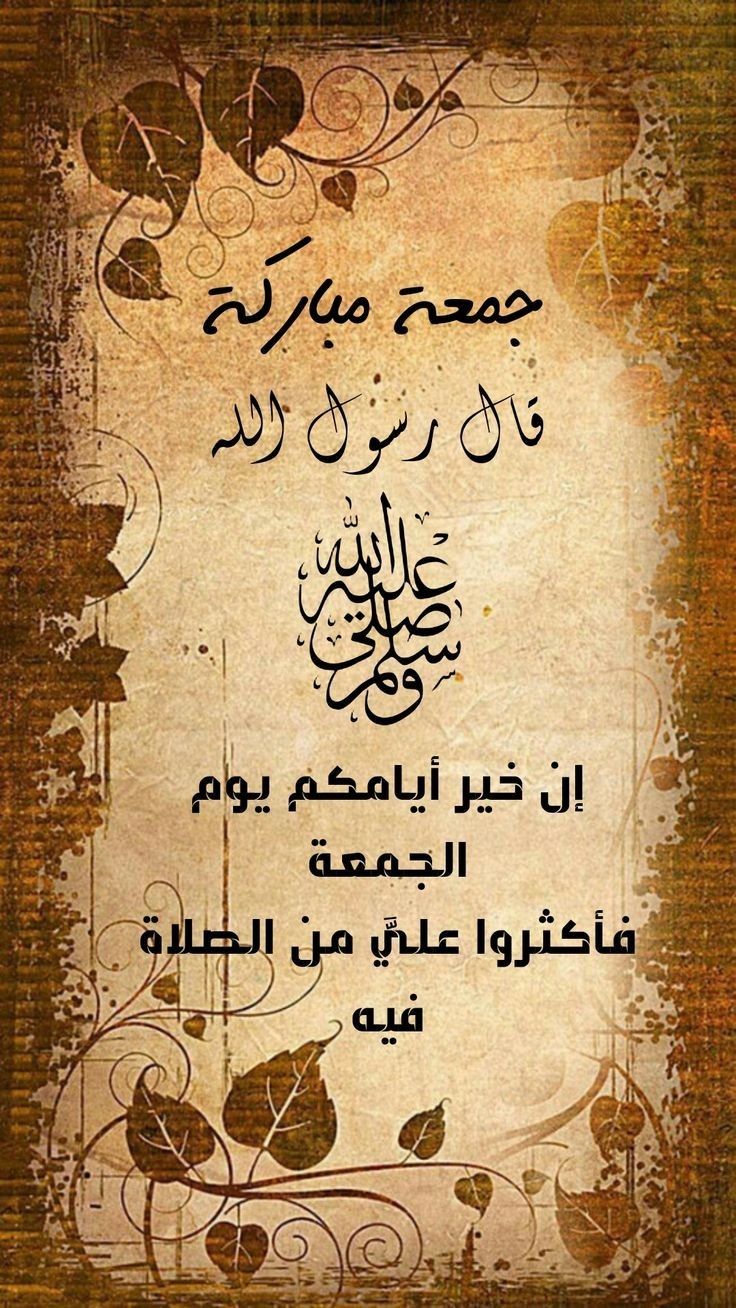 جمعة مباركة
قال رسول الله
صلى الله عليه وسلم
إن خير أيامكم يوم
الجمعة
فأكثروا عليَّ من الصلاة
فيه